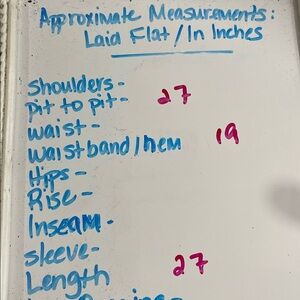 Approximate Measurements:
Laid Flat/In Inches
Shoulders-
Pit to pit- 27
Waist-
Waistband/hem 19
Hips-
Rise-
Inseam-
Sleeve-
Length 27